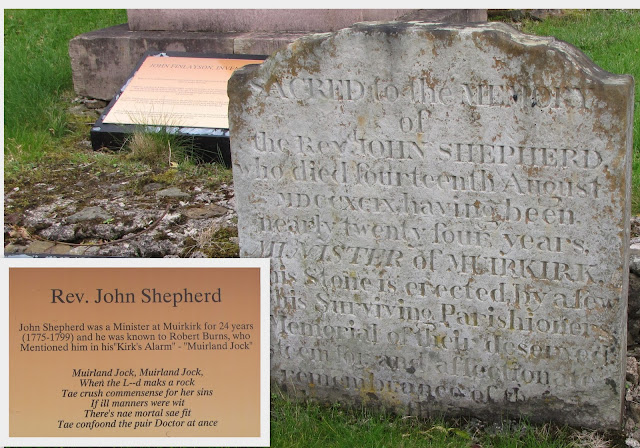 JOHN FINLAYSON, INVEN
SACRED to the MEMORY
of
the Rev. JOHN SHEPHERD
who died fourteenth August
MDCCXCIX having been
nearly twenty four years,
MINISTER of MUIRKIRK.
his Stone is erected by a few
his Surviving Parishioners
Memorial of their deserved
steem and affectionate
remembrance of
Rev. John Shepherd
John Shepherd was a Minister at Muirkirk for 24 years
(1775-1799) and he was known to Robert Burns, who
Mentioned him in his"Kirk's Alarm" - "Muirland Jock"
Muirland Jock, Muirland Jock,
When the L--d maks a rock
Tae crush commensense for her sins
If ill manners were wit
There's nae mortal sae fit
Tae confoond the puir Doctor at ance